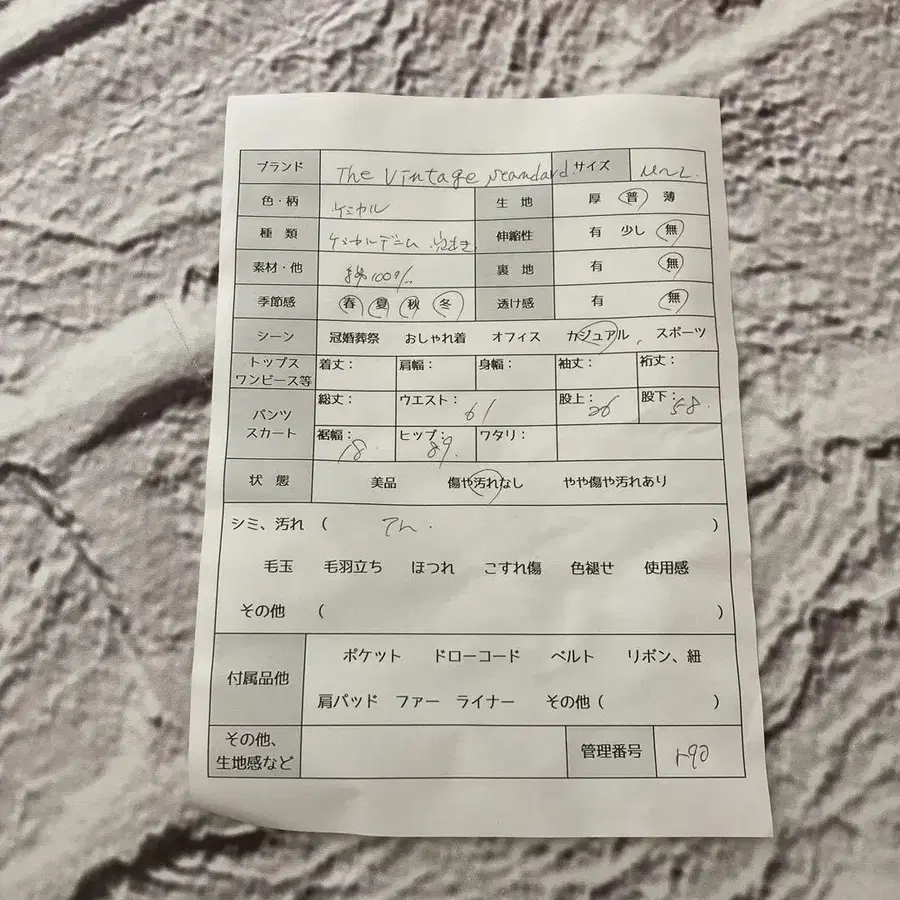 ブランド The Vintage Standard. サイズ M〜L.
色・柄 ケミカル 生地 厚 普 薄
種類 ケミカルデニム 伸縮性 有 少し 無
素材・他 綿100% 裏地 有 無
季節感 春 夏 秋 冬 透け感 有 無
シーン 冠婚葬祭 おしゃれ着 オフィス カジュアル スポーツ
トップス ワンピース等 着丈: 肩幅: 身幅: 袖丈: 裄丈:
パンツ スカート 総丈: ウエスト: 61 股上: 26 股下: 58.
裾幅: 18. ヒップ: 89. ワタリ:
状態 美品 傷や汚れなし やや傷や汚れあり
シミ、汚れ ( てん. )
毛玉 毛羽立ち ほつれ こすれ傷 色褪せ 使用感
その他 ( )
付属品他 ポケット ドローコード ベルト リボン、紐
肩パッド ファー ライナー その他 ( )
その他、
生地感など 管理番号 r90